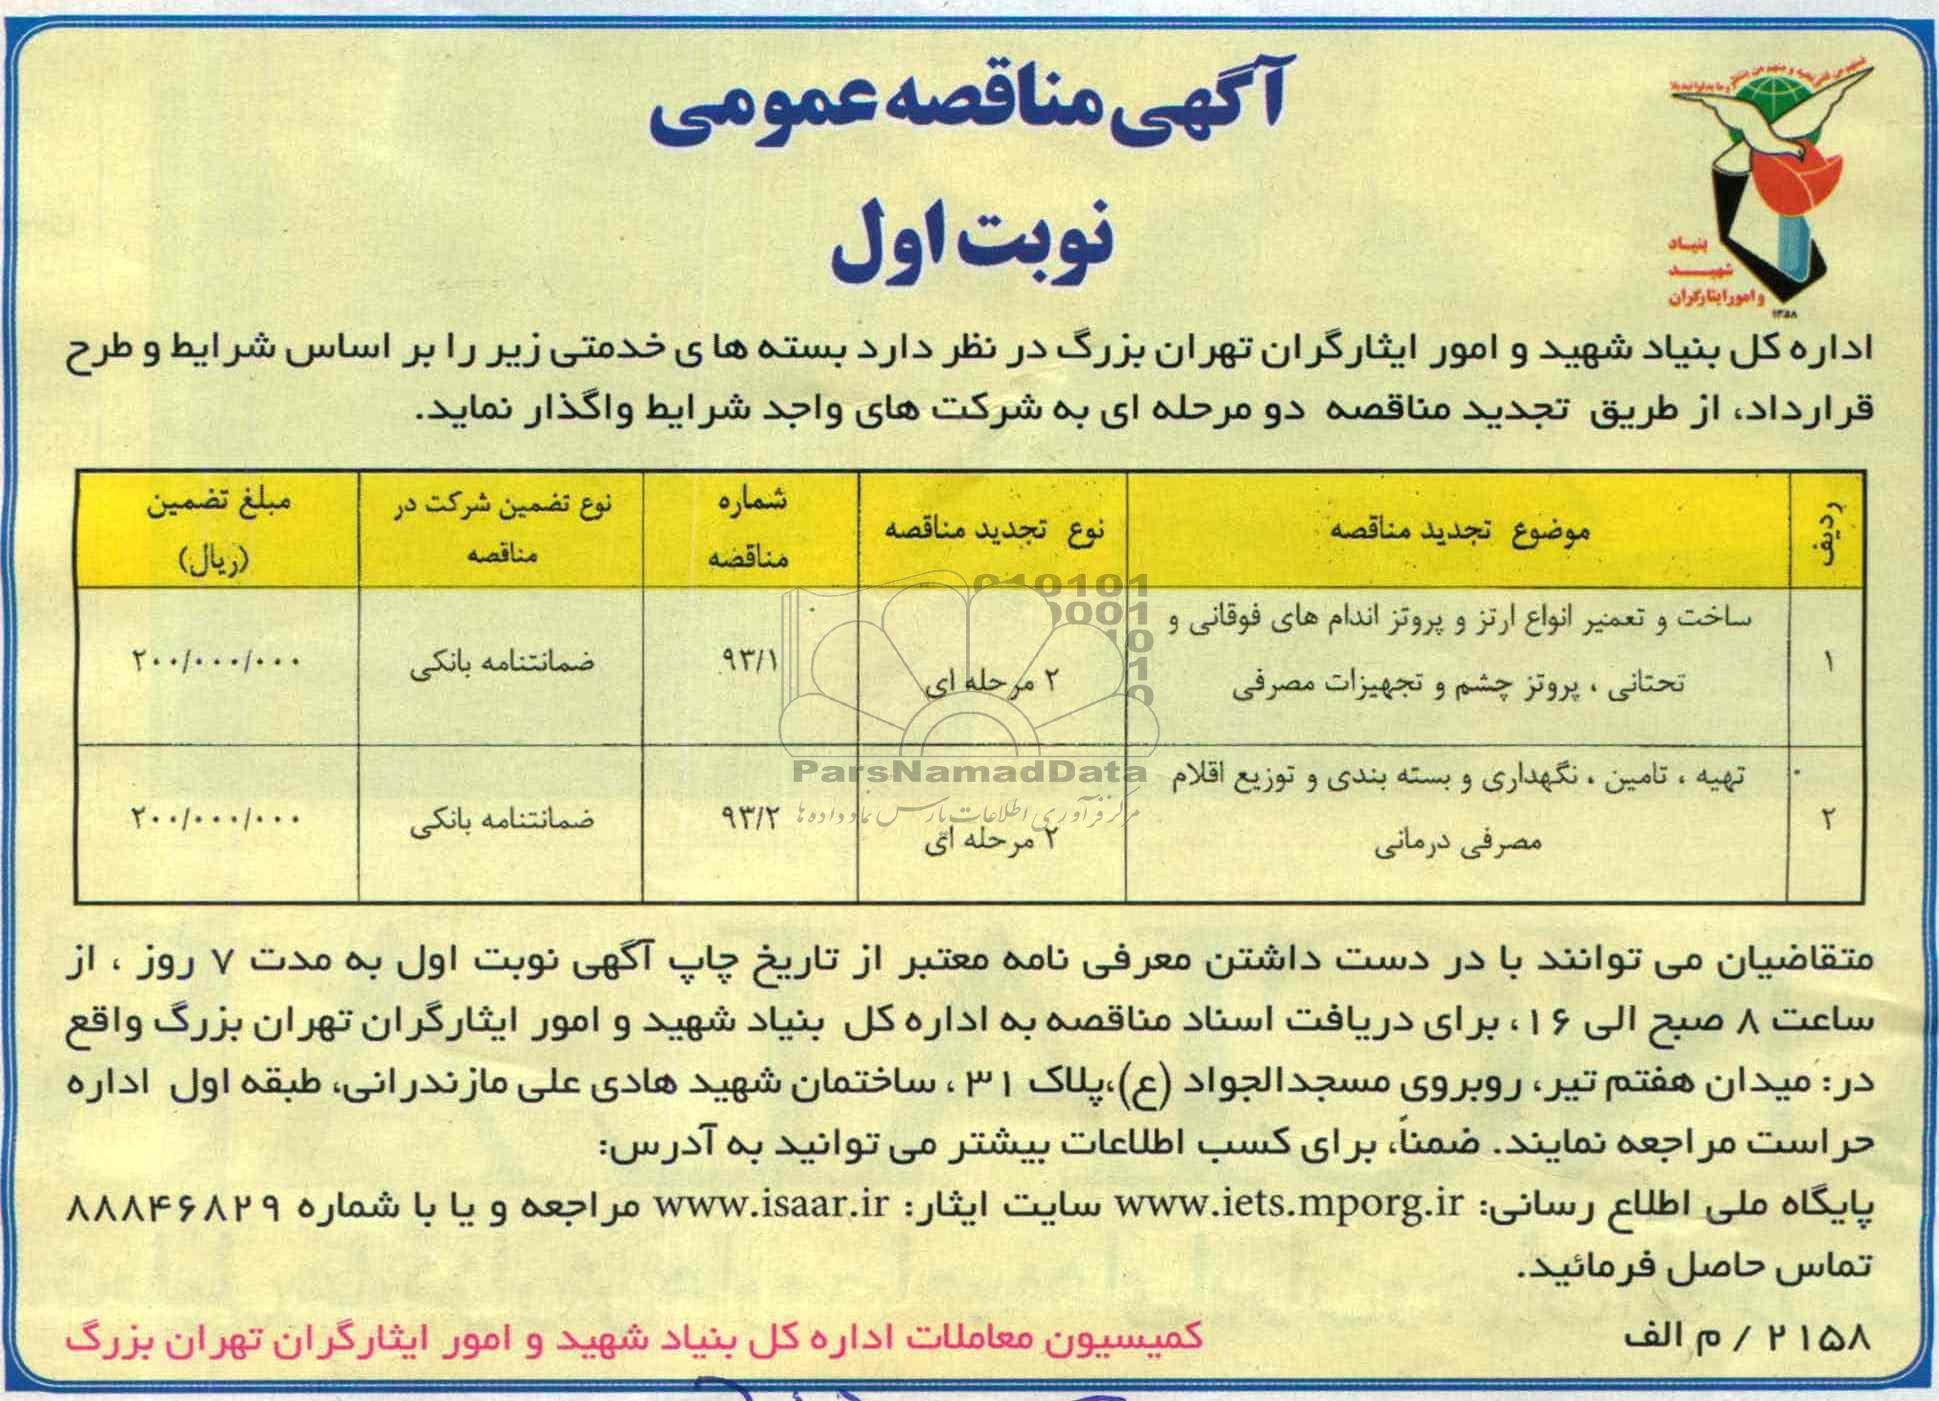 آگهی مناقصه عمومی
نوبت اول
بنیاد
شهید
و امور ایثارگران
۱۳۵۸
اداره کل بنیاد شهید و امور ایثارگران تهران بزرگ در نظر دارد بسته های خدمتی زیر را بر اساس شرایط و طرح
قرارداد، از طریق تجدید مناقصه دو مرحله ای به شرکت های واجد شرایط واگذار نماید.
ردیف
موضوع تجدید مناقصه
نوع تجدید مناقصه
شماره
مناقصه
نوع تضمین شرکت در
مناقصه
مبلغ تضمین
(ریال)
۱
ساخت و تعمیر انواع ارتز و پروتز اندام های فوقانی و
تحتانی ، پروتز چشم و تجهیزات مصرفی
۲ مرحله ای
۹۳/۱
ضمانتنامه بانکی
۲۰۰/۰۰۰/۰۰۰
۲
تهیه ، تامین ، نگهداری و بسته بندی و توزیع اقلام
مصرفی درمانی
۲ مرحله ای
۹۳/۲
ضمانتنامه بانکی
۲۰۰/۰۰۰/۰۰۰
ParsNamadData
مرکز فرآوری اطلاعات پارس نماد داده ها
متقاضیان می توانند با در دست داشتن معرفی نامه معتبر از تاریخ چاپ آگهی نوبت اول به مدت ۷ روز ، از
ساعت ۸ صبح الی ۱۶، برای دریافت اسناد مناقصه به اداره کل بنیاد شهید و امور ایثارگران تهران بزرگ واقع
در: میدان هفتم تیر، روبروی مسجدالجواد (ع)،پلاک ۳۱ ، ساختمان شهید هادی علی مازندرانی، طبقه اول اداره
حراست مراجعه نمایند. ضمناً، برای کسب اطلاعات بیشتر می توانید به آدرس:
پایگاه ملی اطلاع رسانی: www.iets.mporg.ir سایت ایثار: www.isaar.ir مراجعه و یا با شماره ۸۸۸۴۶۸۲۹
تماس حاصل فرمائید.
۲۱۵۸ / م الف
کمیسیون معاملات اداره کل بنیاد شهید و امور ایثارگران تهران بزرگ